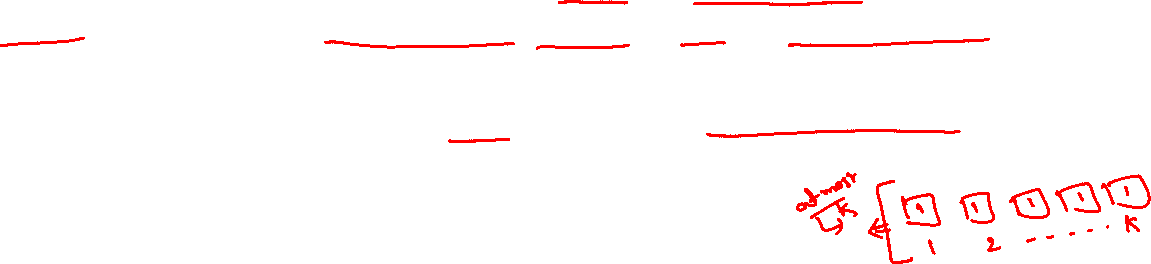 at-most
K
1 1 1 1 1
1 2 - - - - - - K